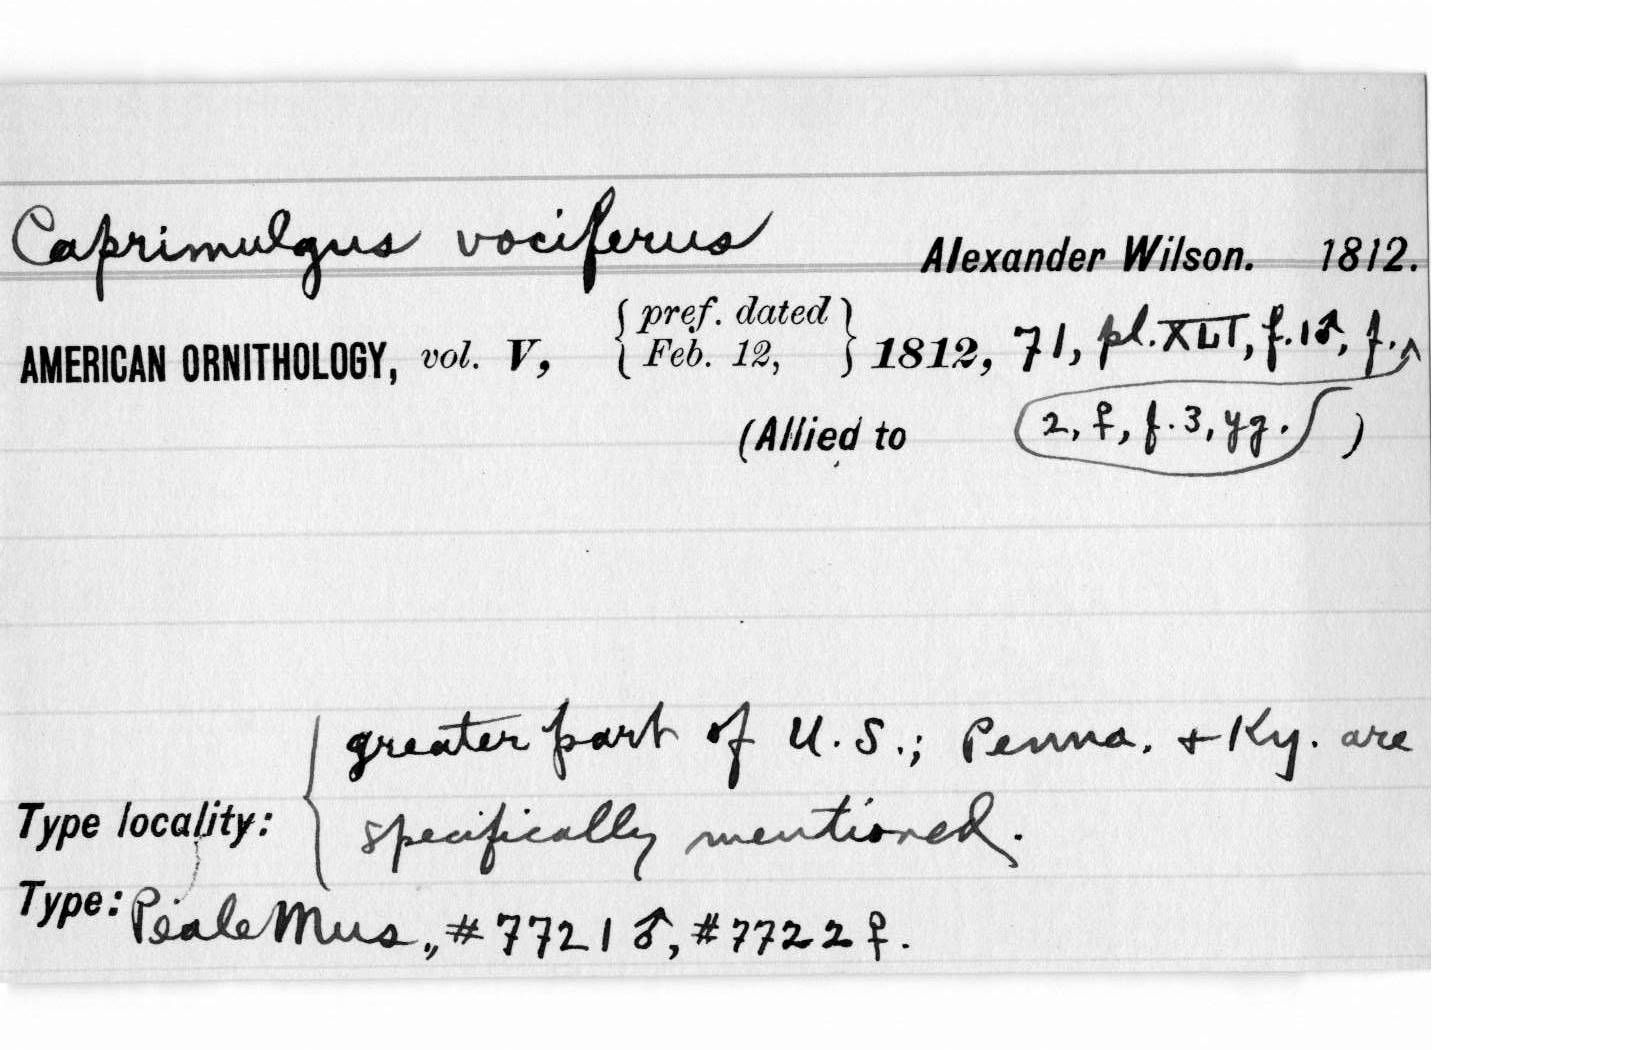 Caprimulgus vociferus Alexander Wilson. 1812.
AMERICAN ORNITHOLOGY, vol. V, { pref. dated Feb. 12, } 1812, 71, pl. XLI, f. 1♂, f.
(Allied to 2, ♀, f. 3, yg. )
greater part of U.S.; Penna. + Ky. are
Type locality: specifically mentioned.
Type: Peale Mus., #7721♂, #7722♀.